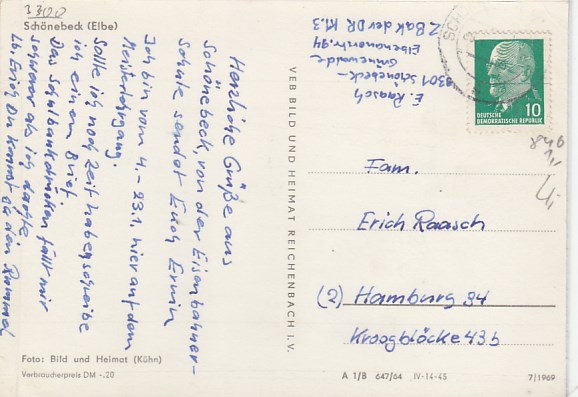 3300
Schönebeck (Elbe)
Herzliche Grüße aus
Schönebeck, von der Eisenbahner-
Schule sendet Euch Erwin
Ich bin vom 4. - 23.1. hier auf dem
Meisterlehrgang.
Sollte ich noch Zeit haben schreibe
ich einem Brief.
Das Schulbankdrücken fällt mir
schwerer als ich dachte
Lb. Erich Du kennst ja den Rummel
Foto: Bild und Heimat (Kühn)
Verbraucherpreis DM -.20
VEB BILD UND HEIMAT REICHENBACH I. V.
E. Raasch
3301 Schönebeck-
Grünewalde
Elbenauerstr. 94
Z Bak der DR Kl. 3
10
DEUTSCHE
DEMOKRATISCHE REPUBLIK
Fam.
Erich Raasch
(2) Hamburg 34
Kroogblöcke 43b
A 1/B 647/64 IV-14-45
7/1969